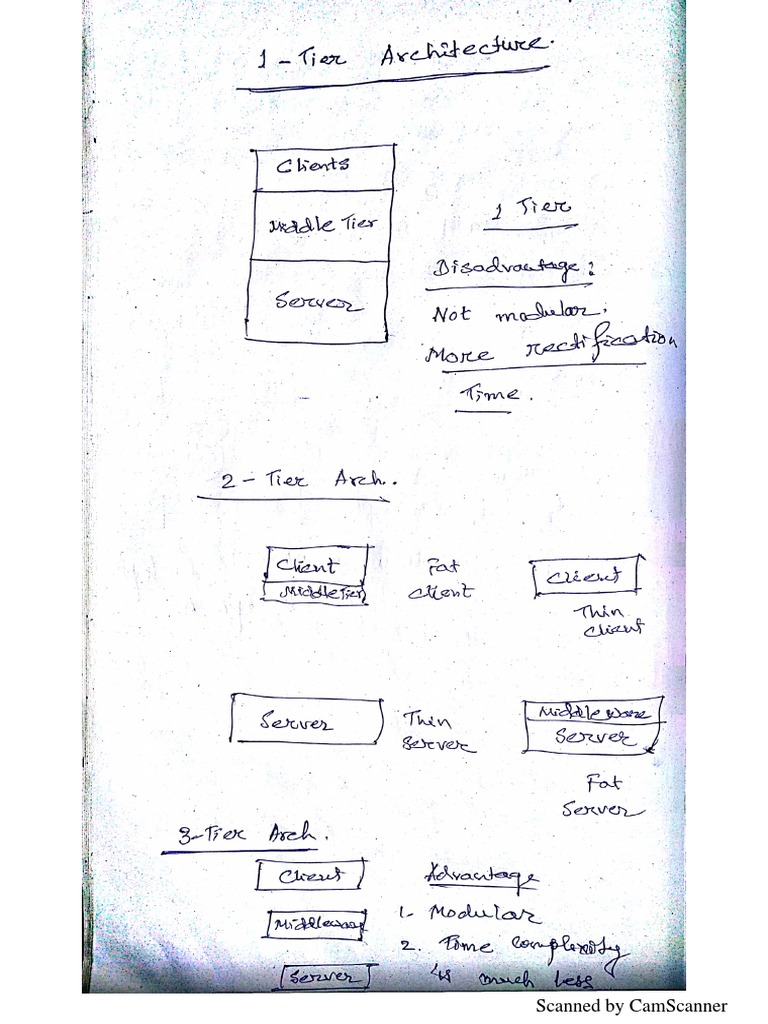 1 - Tier Architecture.
Clients
Middle Tier
Server
1 Tier
Disadvantage:
Not modular.
More rectification
Time.
2 - Tier Arch..
Client
Middle Tier
Fat
Client
Client
Thin
Client
Server
Thin
Server
Middleware
Server
Fat
Server
3-Tier Arch.
Client
Middleware
Server
Advantage
1. Modular
2. Time complexity
is much less
Scanned by CamScanner